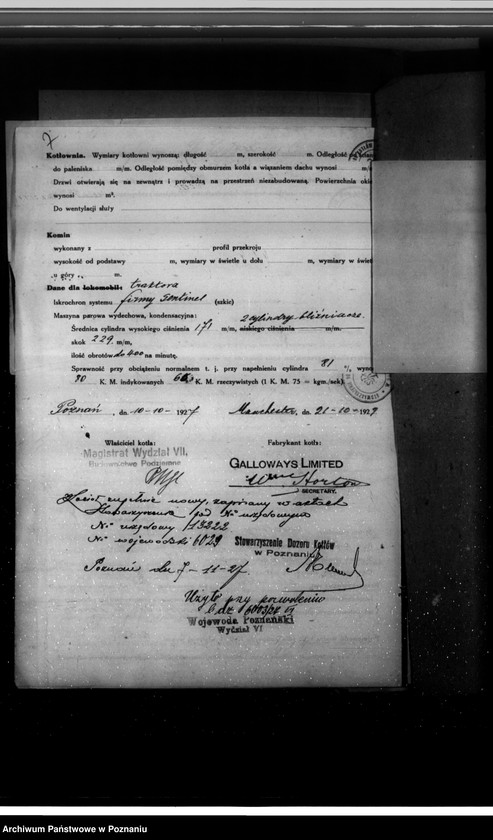 7
Kotłownia. Wymiary kotłowni wynoszą: długość m, szerokość m. Odległość
do paleniska m/m. Odległość pomiędzy obmurzem kotła a wiązaniem dachu wynosi m/
Drzwi otwierają się na zewnątrz i prowadzą na przestrzeń niezabudowaną. Powierzchnia okie
wynosi m².
Do wentylacji służy
Komin
wykonany z profil przekroju
wysokość od podstawy m, wymiary w świetle u dołu m, wymiary w świet
u góry m.
Dane dla lokomobili: traktora
Iskrochron systemu firmy Sentinel (szkic)
Maszyna parowa wydechowa, kondensacyjna: 2 cylindry bliźniacze.
Średnica cylindra wysokiego ciśnienia 171 m/m, niskiego ciśnienia m/m.
skok 229 m/m,
ilość obrotów do 400 na minutę.
Sprawność przy obciążeniu normalnem t. j. przy napełnieniu cylindra 81 %, wyno
90 K. M. indykowanych K. M. rzeczywistych (1 K. M. 75 = kgm./sek)
Poznań, dn. 10-10-1927 Manchester, dn. 21-10-1927
Właściciel kotła: Fabrykant kotła:
Magistrat Wydział VII.
Budownictwo Podziemne
GALLOWAYS LIMITED
Wm Horton
SECRETARY.
Kocioł zupełnie nowy, zapisany w aktach
pod No urzędowym
No urzędowy 13222
No wojewódzki 6029
Stowarzyszenie Dozoru Kotłów
w Poznaniu
Poznań dn 7-11-27
Użyto przy pozwoleniu
Wojewoda Poznański
Wydział VI
Archiwum Państwowe w Poznaniu